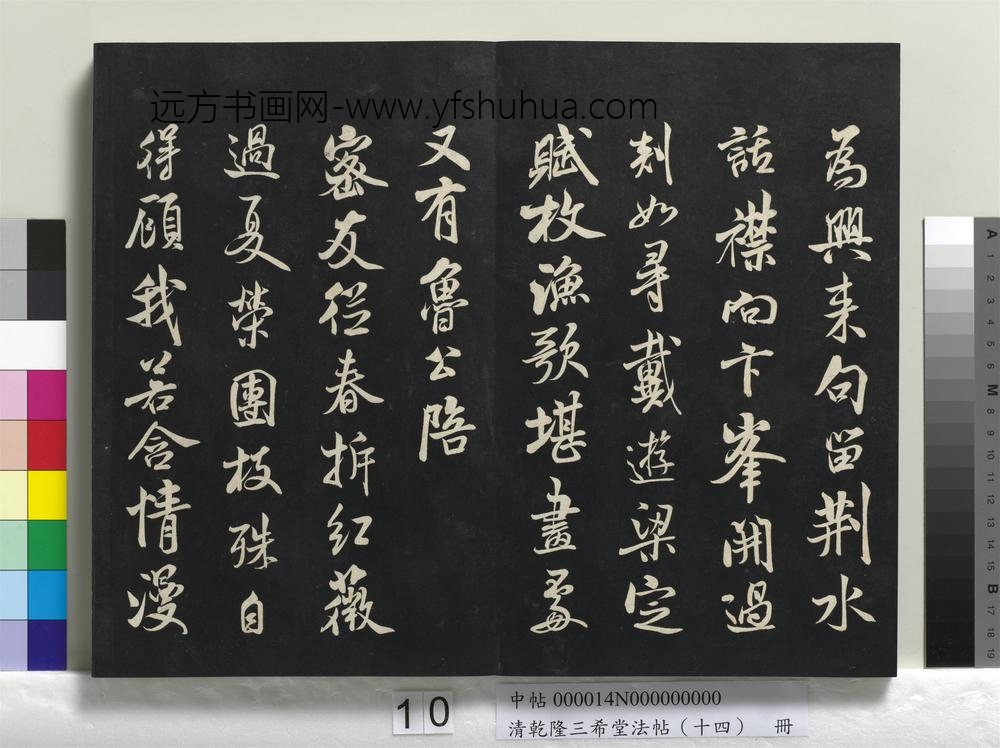 远方书画网-www.yfshuhua.com
為興來句留荆水
話襟向卞峯開過
剡如尋戴遊梁定
賦枚漁歌堪畫處
又有魯公陪
密友從春拆紅薇
過夏榮團枝殊自
得顧我若含情漫
A 1 2 3 4 5 6 M 8 9 10 11 12 13 14 15 B 17 18 19
10
中帖 000014N000000000
清乾隆三希堂法帖（十四） 冊